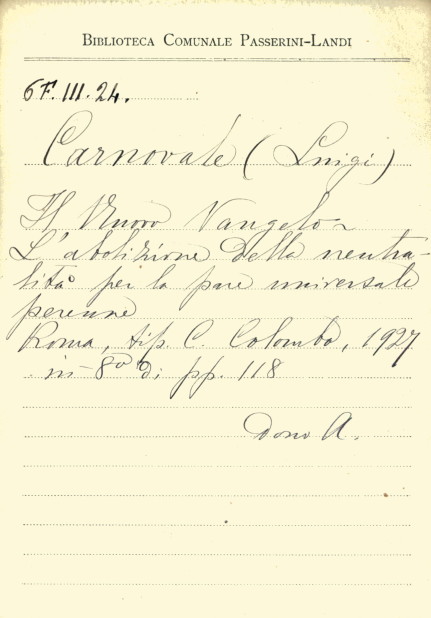 BIBLIOTECA COMUNALE PASSERINI-LANDI
6F. III. 24.
Carnovale (Luigi)
Il Nuovo Vangelo -
L'abolizione della neutra-
lità per la pace universale
perenne
Roma, tip. C. Colombo, 1927
in-8º di pp. 118
Dono A.